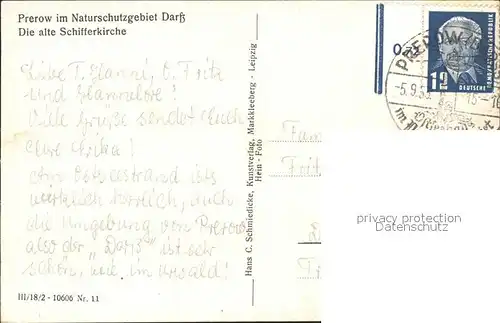 Prerow im Naturschutzgebiet Darß
Die alte Schifferkirche
Liebe T. Hanni, O. Fritz
und Hannelore!
Viele Grüße sendet Euch
Eure Erika!
Am Ostseestrand ists
wirklich herrlich, auch
die Umgebung von Prerow
also der „Darß" ist sehr
schön, wie im Urwald!
III/18/2 - 10606 Nr. 11
Hans C. Schmiedicke, Kunstverlag, Markkleeberg - Leipzig
Hein - Foto
PREROW
-5.9.5
12
DEUTSCHE
Fam
Frit
privacy protection
copyright protection